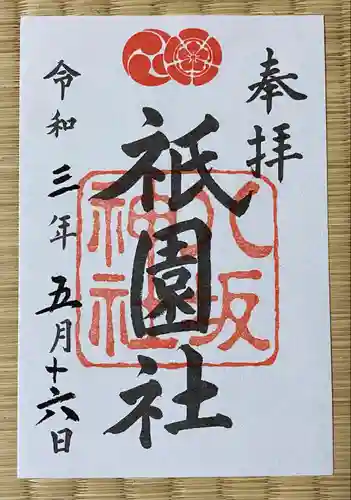 奉拝
八坂神社
祇園社
令和三年五月十六日